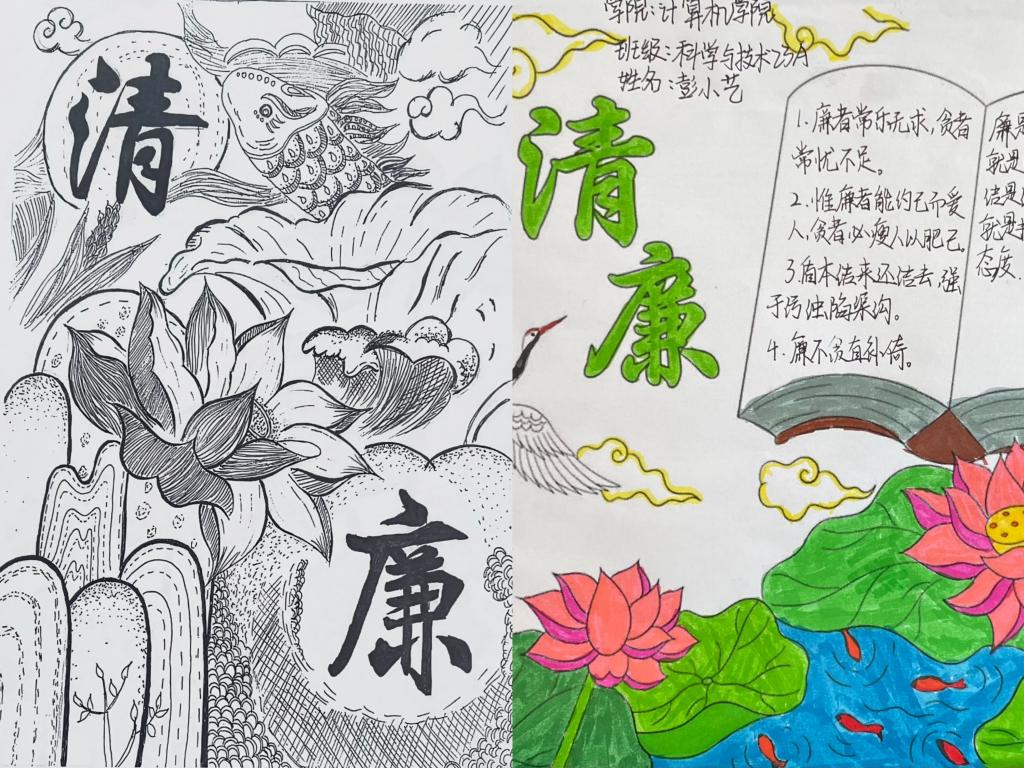 清
廉
学院:计算机学院
班级:科学与技术23A
姓名:彭小艺
清
廉
1.廉者常乐无求,贪者
常忧不足。
2.惟廉者能约己而爱
人,贪者必瘦人以肥己.
3.质本洁来还洁去,强
于污浊陷渠沟。
4.廉不贪直补倚。
廉是
就是
洁是
就是
态度.